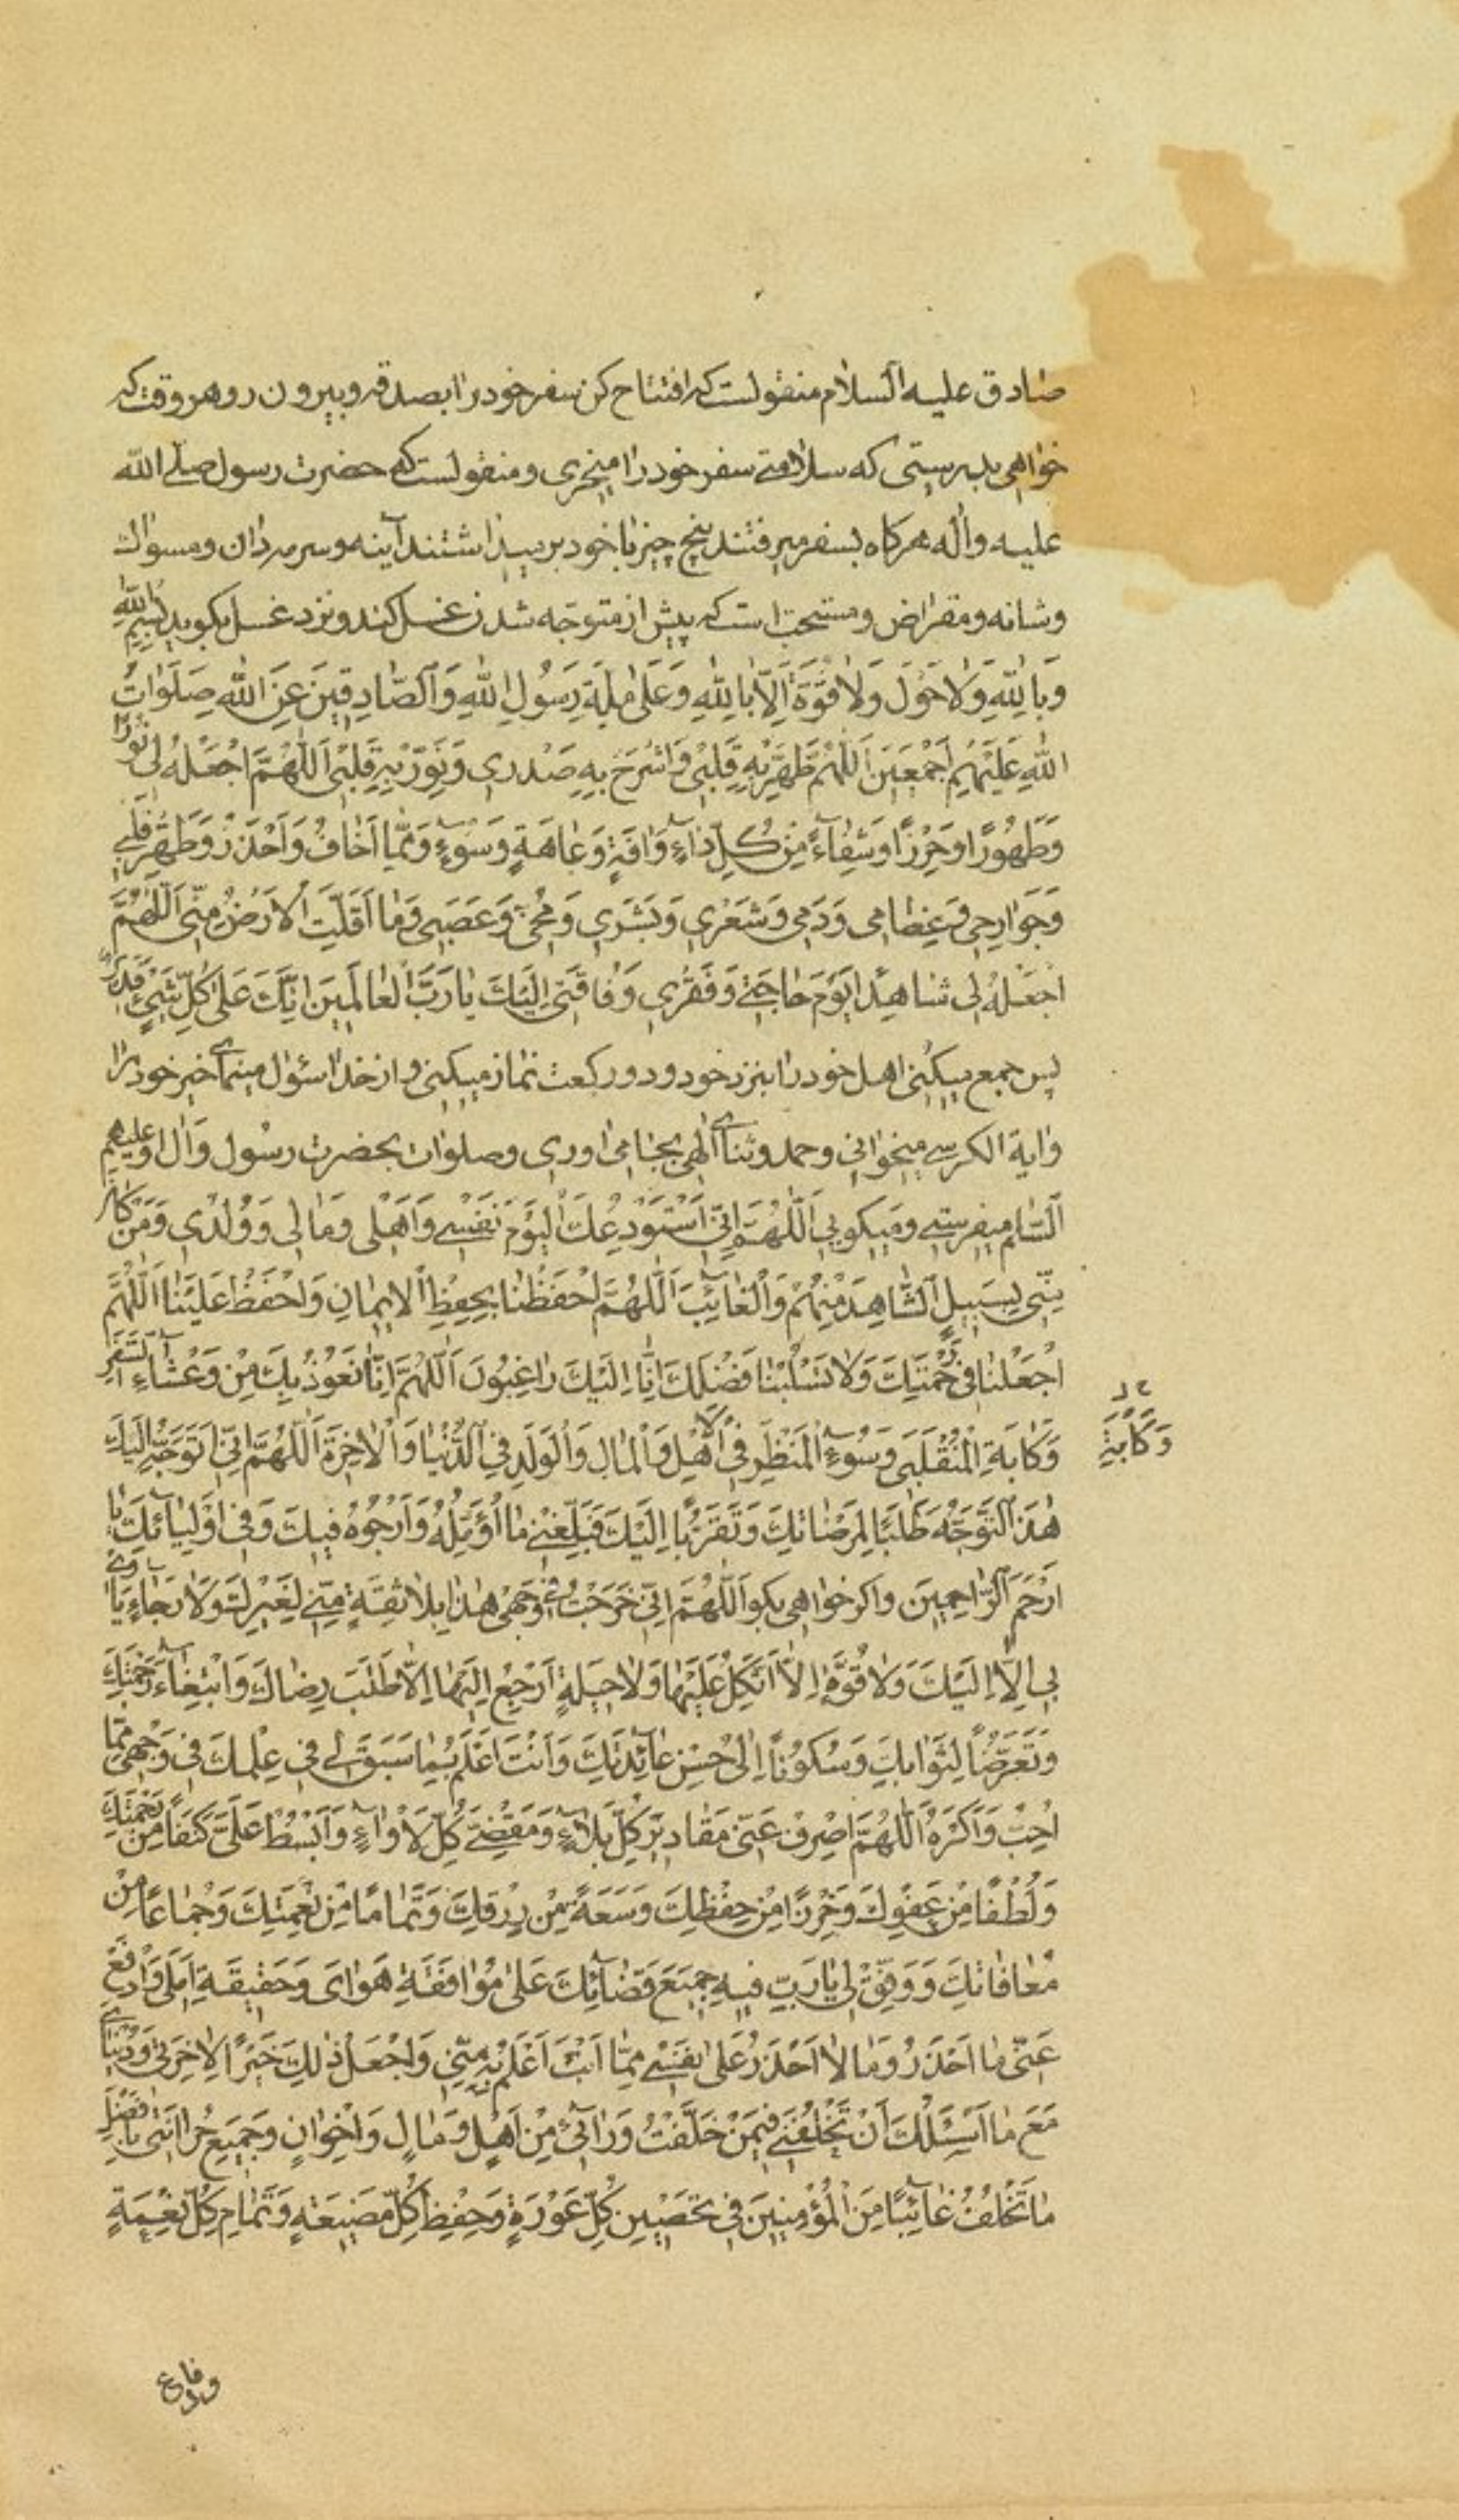 صادق علیه السلام منقولست که افتتاح کن سفر خود را بصدقه و بیرون رو هر وقت که
خواهی بدرستی که سلامتی سفر خود را میخری و منقولست که حضرت رسول صلی الله
علیه واله هر کاه بسفر میرفتند پنج چیز با خود بر میداشتند آینه و سرمه دان و مسواک
و شانه و مقراض و مستحب است که پیش از متوجه شدن غسل کند و نزد غسل بکوید بِسْمِ اللهِ
وَبِاللهِ وَلا حَوْلَ وَلا قُوَّةَ اِلّا بِاللهِ وَعَلى مِلَّةِ رَسُولِ اللهِ وَالصّادِقینَ عَنِ اللهِ صَلَواتُ
اللهِ عَلَیْهِمْ اَجْمَعینَ اَللّهُمَّ طَهِّرْ بِهِ قَلْبی وَاشْرَحْ بِهِ صَدْری وَنَوِّرْ بِهِ قَلْبی اَللّهُمَّ اجْعَلْهُ لی نُورًا
وَطَهُورًا وَحِرْزًا وَشِفاءً مِنْ كُلِّ داءٍ وَافَةٍ وَعاهَةٍ وَسُوءٍ وَمِمّا اَخافُ وَاَحْذَرُ وَطَهِّرْ قَلْبی
وَجَوارِحی وَعِظامی وَدَمی وَشَعْری وَبَشَری وَمُخّی وَعَصَبی وَما اَقَلَّتِ الْاَرْضُ مِنّی اَللّهُمَّ
اجْعَلْهُ لی شاهِدًا یَوْمَ حاجَتی وَفَقْری وَفاقَتی اِلَیْكَ یا رَبَّ الْعالَمینَ اِنَّكَ عَلى كُلِّ شَیْءٍ قَدیرٌ
پس جمع میکنی اهل خود را بنزد خود و دو رکعت نماز میکنی و از خدا سؤال مینمائی خیر خود را
و ایة الکرسی میخوانی و حمد و ثنای الهی بجا می اوری و صلوات بحضرت رسول و ال او علیهم
السلام میفرستی و میکویی اَللّهُمَّ اِنّی اَسْتَوْدِعُكَ الْیَوْمَ نَفْسی وَاَهْلی وَمالی وَوُلْدی وَمَنْ كانَ
مِنّی بِسَبیلٍ الشّاهِدَ مِنْهُمْ وَالْغائِبَ اَللّهُمَّ احْفَظْنا بِحِفْظِ الْایمانِ وَاحْفَظْ عَلَیْنا اَللّهُمَّ
اجْعَلْنا فی رَحْمَتِكَ وَلا تَسْلُبْنا فَضْلَكَ اِنّا اِلَیْكَ راغِبُونَ اَللّهُمَّ اِنّا نَعُوذُ بِكَ مِنْ وَعْثاءِ السَّفَرِ
وَكَابَةِ الْمُنْقَلَبِ وَسُوءِ الْمَنْظَرِ فِی الْاَهْلِ وَالْمالِ وَالْوَلَدِ فِی الدُّنْیا وَالْاخِرَةِ اَللّهُمَّ اِنّی اَتَوَجَّهُ اِلَیْكَ
وَكَابَةِ
هذَا التَّوَجُّهَ طَلَبًا لِمَرْضاتِكَ وَتَقَرُّبًا اِلَیْكَ فَبَلِّغْنی ما اُؤَمِّلُهُ وَاَرْجُوهُ فیكَ وَفی اَوْلِیائِكَ یا
اَرْحَمَ الرّاحِمینَ و اکر خواهی بکو اَللّهُمَّ اِنّی خَرَجْتُ فی وَجْهی هذا بِلا ثِقَةٍ مِنّی لِغَیْرِكَ وَلا رَجاءٍ یَأْوی
بی اِلّا اِلَیْكَ وَلا قُوَّةٍ اَتَّكِلُ عَلَیْها وَلا حیلَةٍ اَرْجِعُ اِلَیْها اِلّا طَلَبَ رِضاكَ وَابْتِغاءَ رَحْمَتِكَ
وَتَعَرُّضًا لِثَوابِكَ وَسُكُونًا اِلى حُسْنِ عائِدَتِكَ وَاَنْتَ اَعْلَمُ بِما سَبَقَ لی فی عِلْمِكَ فی وَجْهی مِمّا
اُحِبُّ وَاَكْرَهُ اَللّهُمَّ اصْرِفْ عَنّی مَقادیرَ كُلِّ بَلاءٍ وَمَقْضِیَّ كُلِّ لَاْواءٍ وَابْسُطْ عَلَیَّ كَنَفًا مِنْ رَحْمَتِكَ
وَلُطْفًا مِنْ عَفْوِكَ وَحِرْزًا مِنْ حِفْظِكَ وَسَعَةً مِنْ رِزْقِكَ وَتَمامًا مِنْ نِعْمَتِكَ وَجِماعًا مِنْ
مُعافاتِكَ وَوَفِّقْ لی یا رَبِّ فیهِ جَمیعَ قَضائِكَ عَلى مُوافَقَةِ هَوایَ وَحَقیقَةِ اَمَلی وَادْفَعْ
عَنّی ما اَحْذَرُ وَما لا اَحْذَرُ عَلى نَفْسی مِمّا اَنْتَ اَعْلَمُ بِهِ مِنّی وَاجْعَلْ ذلِكَ خَیْرًا لِاخِرَتی وَدُنْیایَ
مَعَ ما اَسْئَلُكَ اَنْ تَخْلُفَنی فیمَنْ خَلَّفْتُ وَرائی مِنْ اَهْلٍ وَمالٍ وَاِخْوانٍ وَجَمیعِ حُزانَتی بِاَفْضَلِ
ما تَخْلُفُ غائِبًا مِنَ الْمُؤْمِنینَ فی تَحْصینِ كُلِّ عَوْرَةٍ وَحِفْظِ كُلِّ مَضیعَةٍ وَتَمامِ كُلِّ نِعْمَةٍ
ودفاع